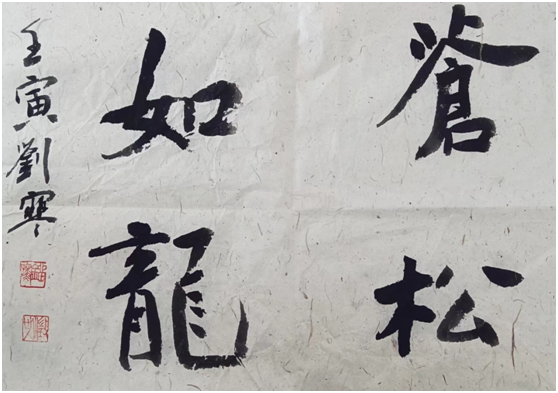 蒼松
如龍
壬寅劉寒